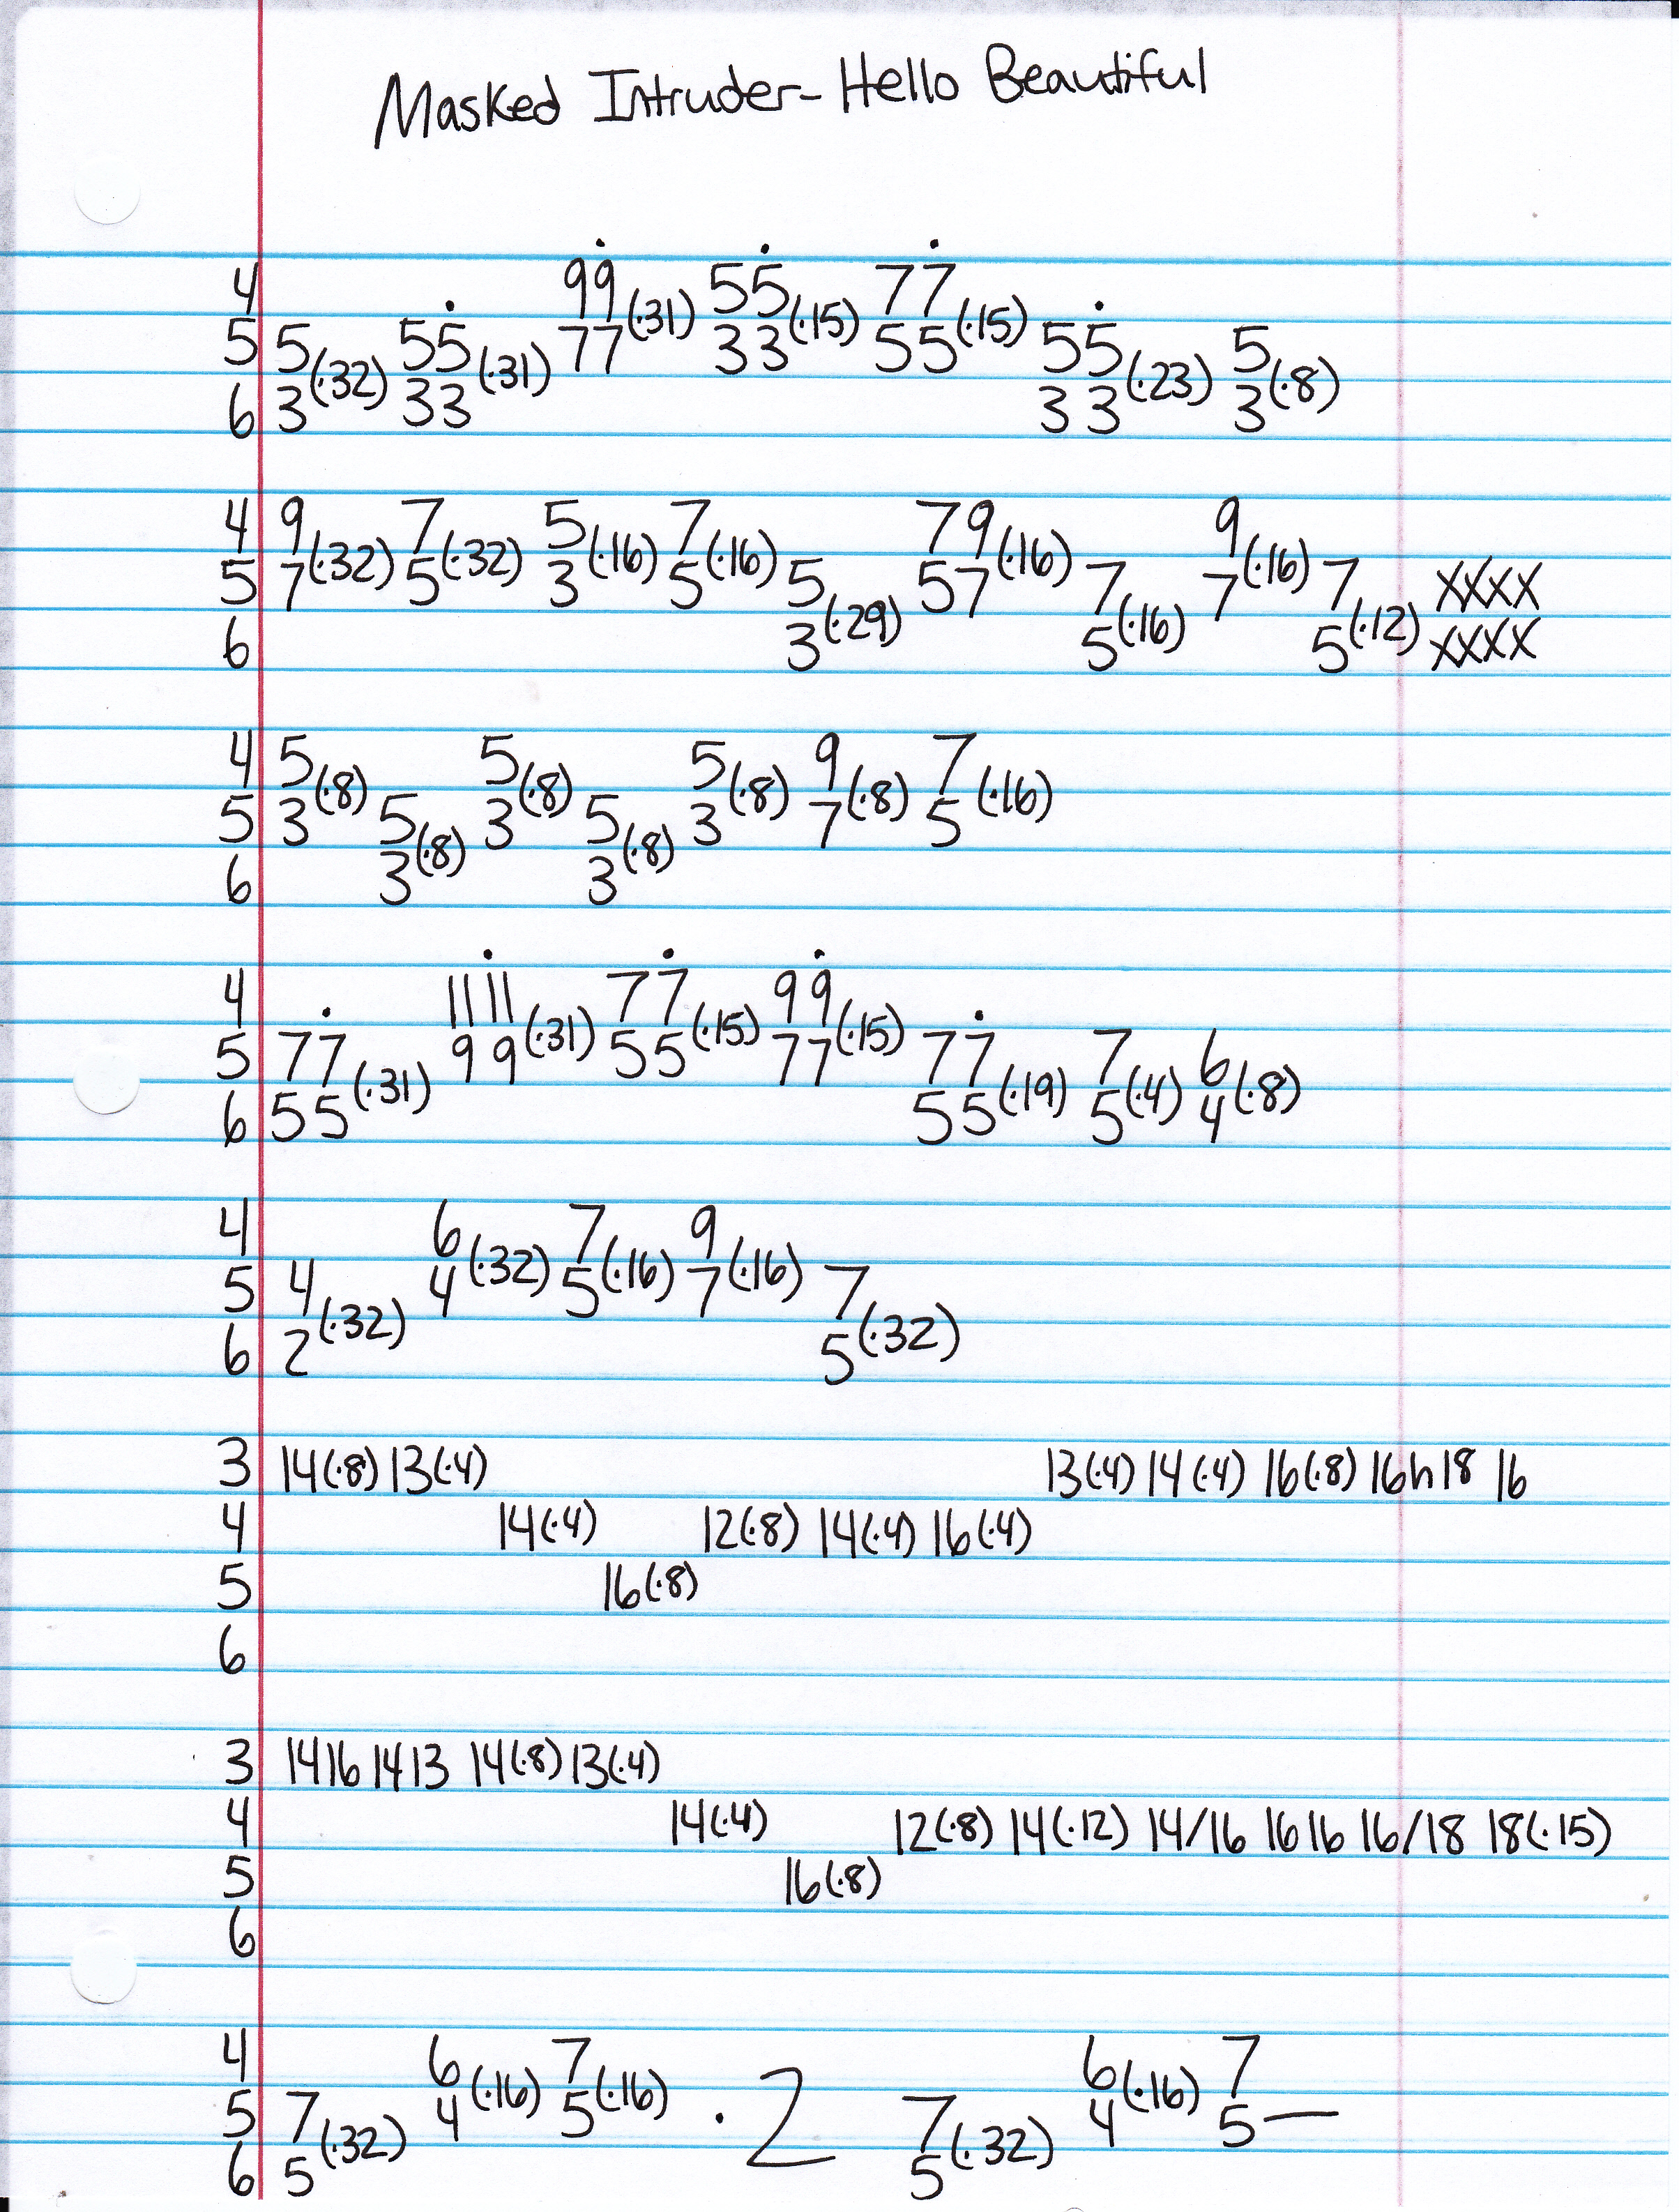 Masked Intruder - Hello Beautiful
4 99(·31) 55(·15) 77(·15)
5 5(·32) 55(·31) 77 33 55 55(·23) 5(·8)
6 3 33 33 3
4 9(·32) 7(·32) 5(·16) 7(·16) 79(·16) 9(·16)
5 7 5 3 5 5(·29) 57 7(·16) 7 7(·12) XXXX
6 3 5 5 XXXX
4 5(·8) 5(·8) 5(·8) 9(·8) 7(·16)
5 3 5(·8) 3 5(·8) 3 7 5
6 3 3
4 11 11(·31) 77(·15) 99(·15)
5 77(·31) 9 9 55 77 77(·19) 7(·4) 6(·8)
6 55 55 5 4
4 6(·32) 7(·16) 9(·16)
5 4(·32) 4 5 7 7(·32)
6 2 5
3 14(·8) 13(·4) 13(·4) 14(·4) 16(·8) 16h18 16
4 14(·4) 12(·8) 14(·4) 16(·4)
5 16(·8)
6
3 14 16 14 13 14(·8) 13(·4)
4 14(·4) 12(·8) 14(·12) 14/16 16 16 16/18 18(·15)
5 16(·8)
6
4 6(·16) 7(·16) 6(·16) 7
5 7(·32) 4 5 ·2 7(·32) 4 5—
6 5 5